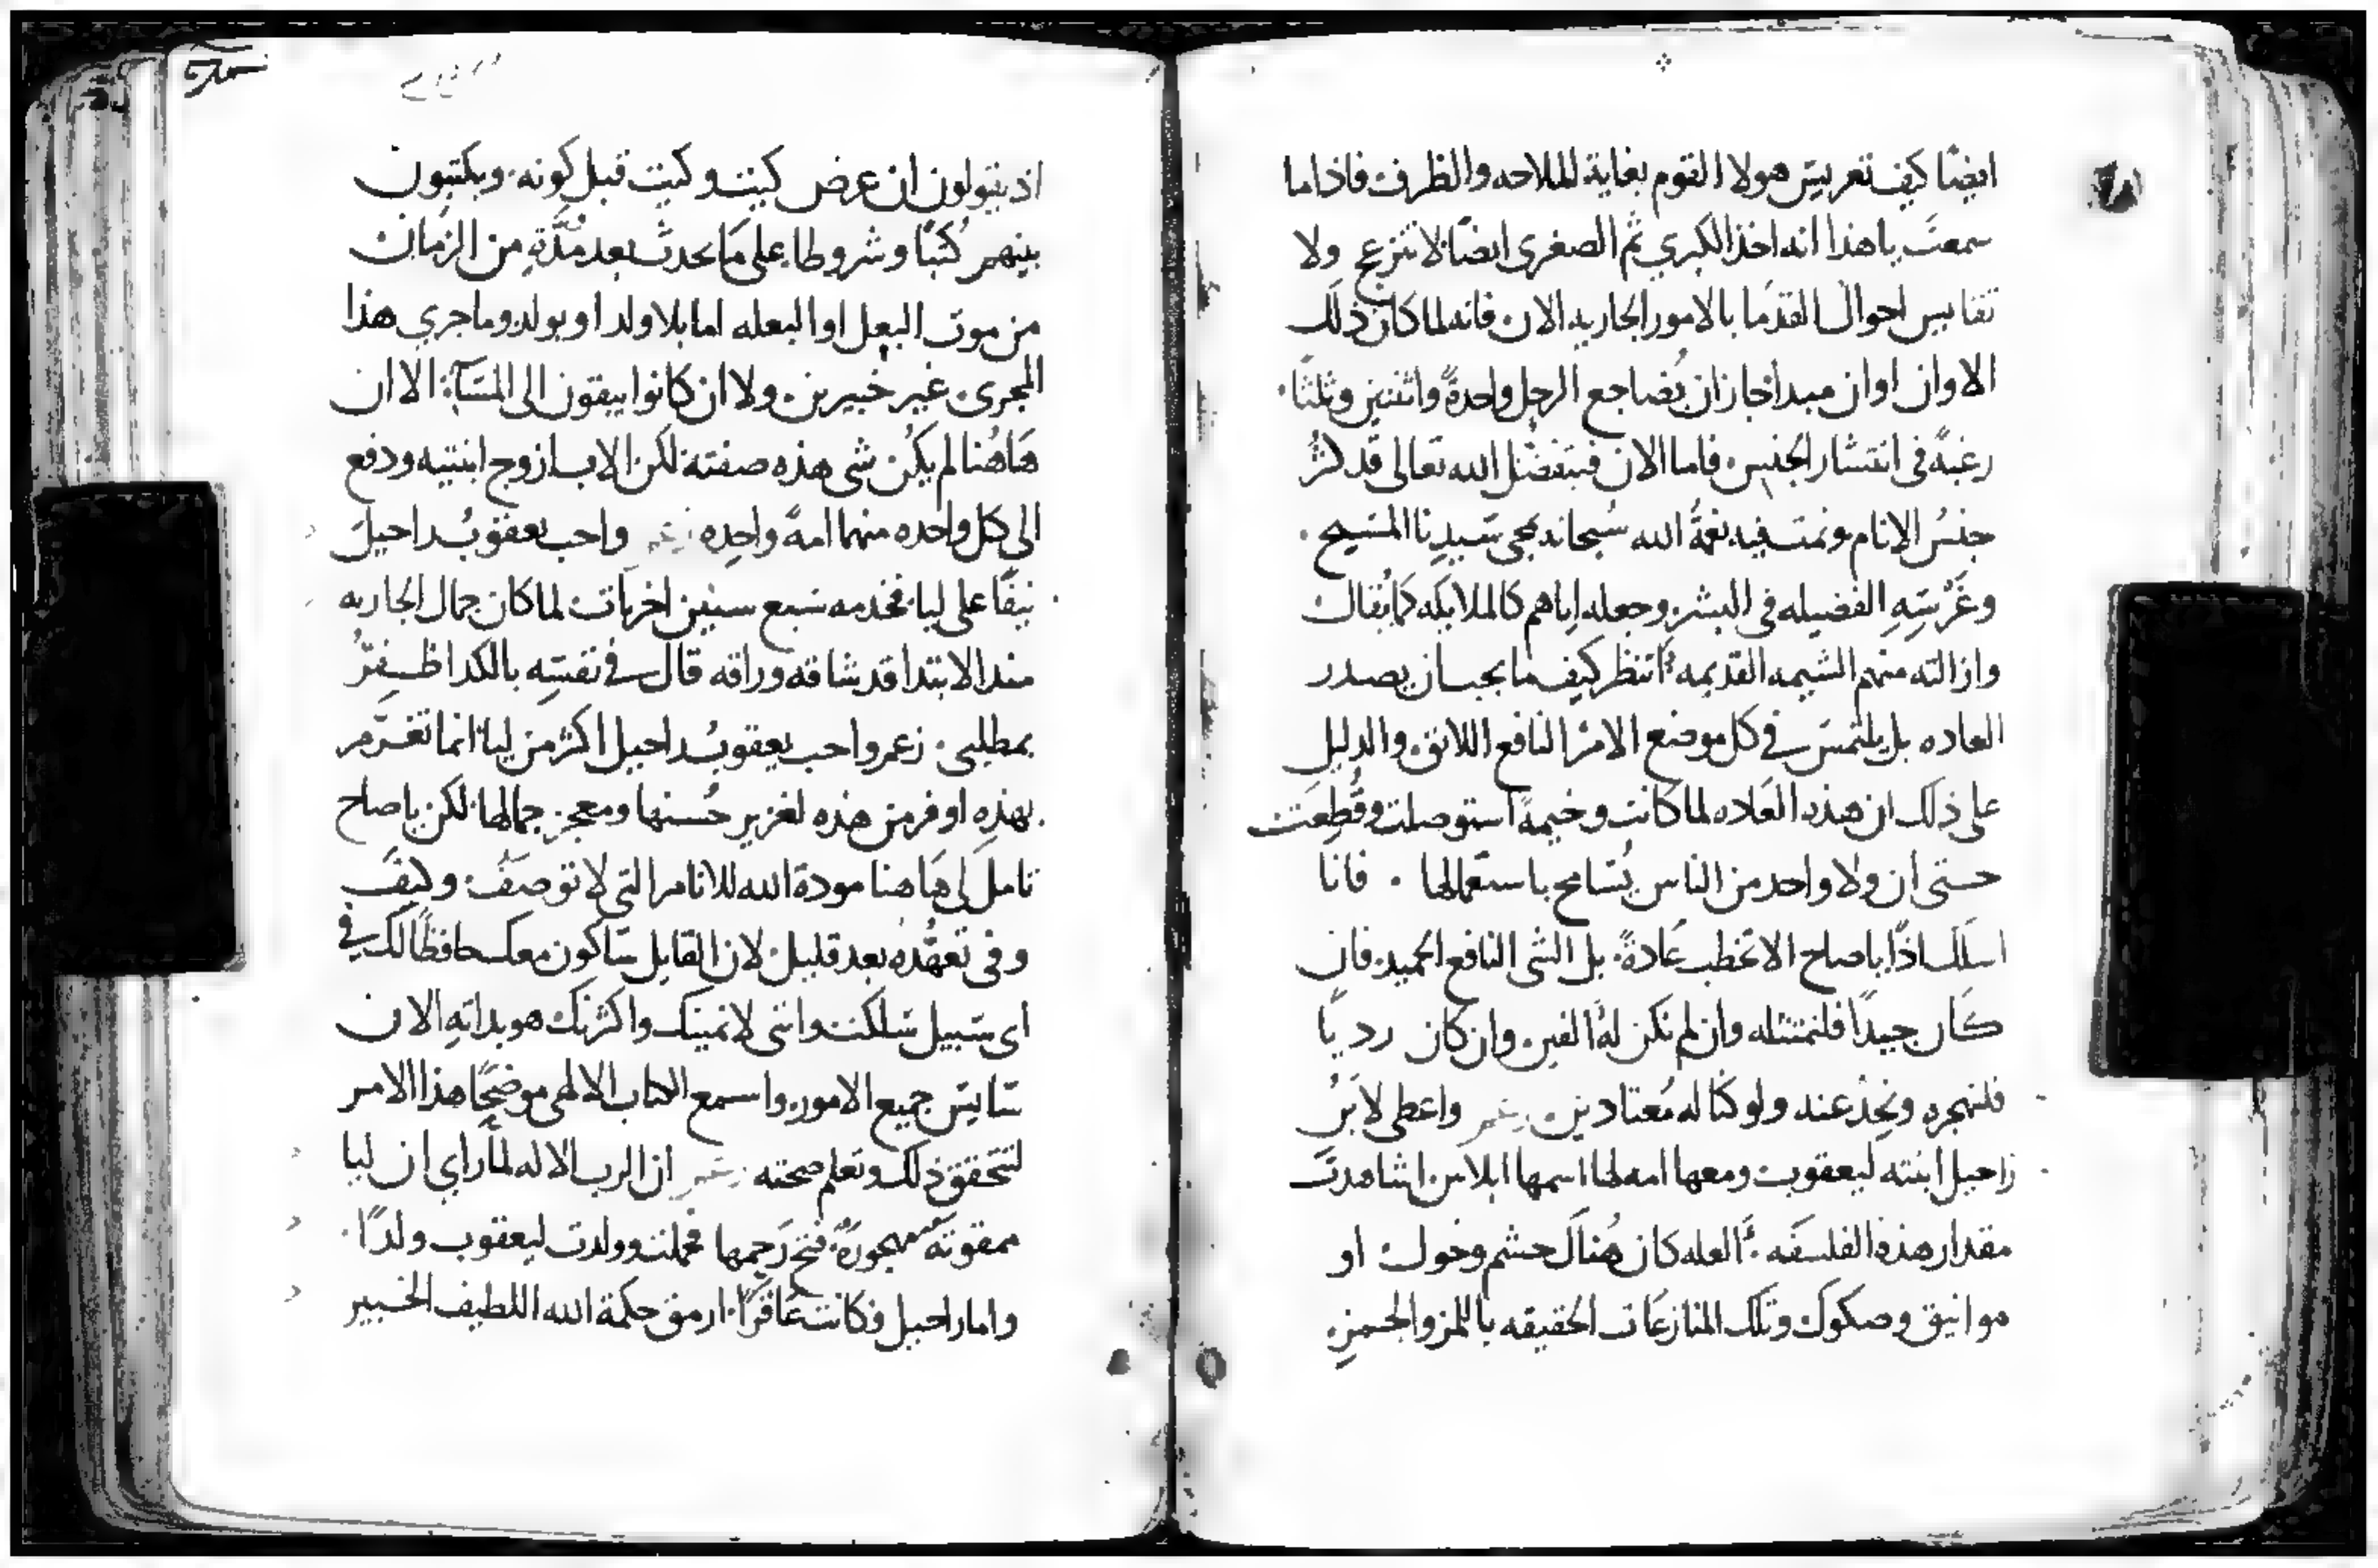 ايضًا كيف تعريس هولا القوم بغاية الملاحه والظرف فاذاما
سمعت ياهذا انه اخذ الكبري ثم الصغرى ايضًا لا تنزعج ولا
تقايس احوال القدما بالامور الجاريه الان فانه لما كان ذلك
الاوان اوان مبدا جاز ان يُضاجع الرجل واحدةً واثنتين وثلثًا
رغبةً في انتشار الجنس فاما الان فبتفضل الله تعالى قد كثرُ
جنسُ الانام ونمت فيه نعمةُ الله سُبحانه بمجى سَيدِنا المسَيح
وغَرْسِهِ الفضيله في البشر وجعله اياهم كالملايكه كما يُقال
وازالته منهم الشيمه القديمه اتنظر كيف ما يجب ان يصدر
العاده بل يلتمسَ في كل موضع الامرُ النافع اللائق والدليل
على ذلك ان هذه العَاده لما كانت وخيمةً استوصلت وقُطِعَت
حتى ان ولا واحد من الناس يُسَامح باستعمالها فانا
اسلك اذًا ياصاح الا تخطب عَادةً بل الشى النافع الحميد فان
كان جيدًا فلنمتثله وان لم نكن لهُ الفين وان كان رديًا
فلنهجره ونحِدْ عنه ولو كنا له مُعتادين واعطى لابن
راحيل ابنته ليعقوب ومعها امه لها اسمها ابلاس اشاهدت
مقدار هذه الفلسفه العله كان هُناك حشم وخول او
مواثيق وصكوك وتلك المنازعَات الحقيقه بالهمز والجمز
اذ يقولون ان عرض كيت وكيت قبل كونه ويكتبون
بينهم كُتبًا وشروطا على مَا يحدث بعد مُدَّةٍ من الزمان
من موت البعل او البعله اما بلا ولد او بولد وما جري هذا
المجرى غير خبيرين ولا ان كانوا يبقون الى المسَآ الا ان
هَاهُنا لم يكن شى هذه صفته لكن الاب ازوج ابنتيه ودفع
الى كل واحده منهما امةً واحِده واحب يعقوبُ راحيل
نيفًا على ليا فخدمه سَبع سنين اخريات لما كان جمال الجاريه
منذ الابتدا قد شاقه وراقه قال في نفسِه بالكد اظفرُ
بمطلبى زعم واحب يعقوبُ راحيل اكثر من ليا انما تغرّم
بهذِه اوفر من هذه لغزير حُسنها ومعجز جمالها لكن ياصاح
تامل لى هَاهنا مودة الله للانام التى لا توصَف وكيف
وفى تعهُّدهُ بعد قليل لان القايل سَاكون معك حافظًا لك في
اى سَبيل سَلكت وانى لانمينك واكثرنك هو بداتهِ الان
سَايسَ جميع الامور واسمع الكتاب الالهى موضحًا هذا الامر
لتتحقق ذلك وتعلم صحته ان الرب الاله لما راي ان ليا
ممقوتَه مهجورةً فتح رَحِمها فحملت وولدت ليعقوب ولدًا
واما راحيل فكانت عَاقرًا ارمق حكمة الله اللطيف الخبير